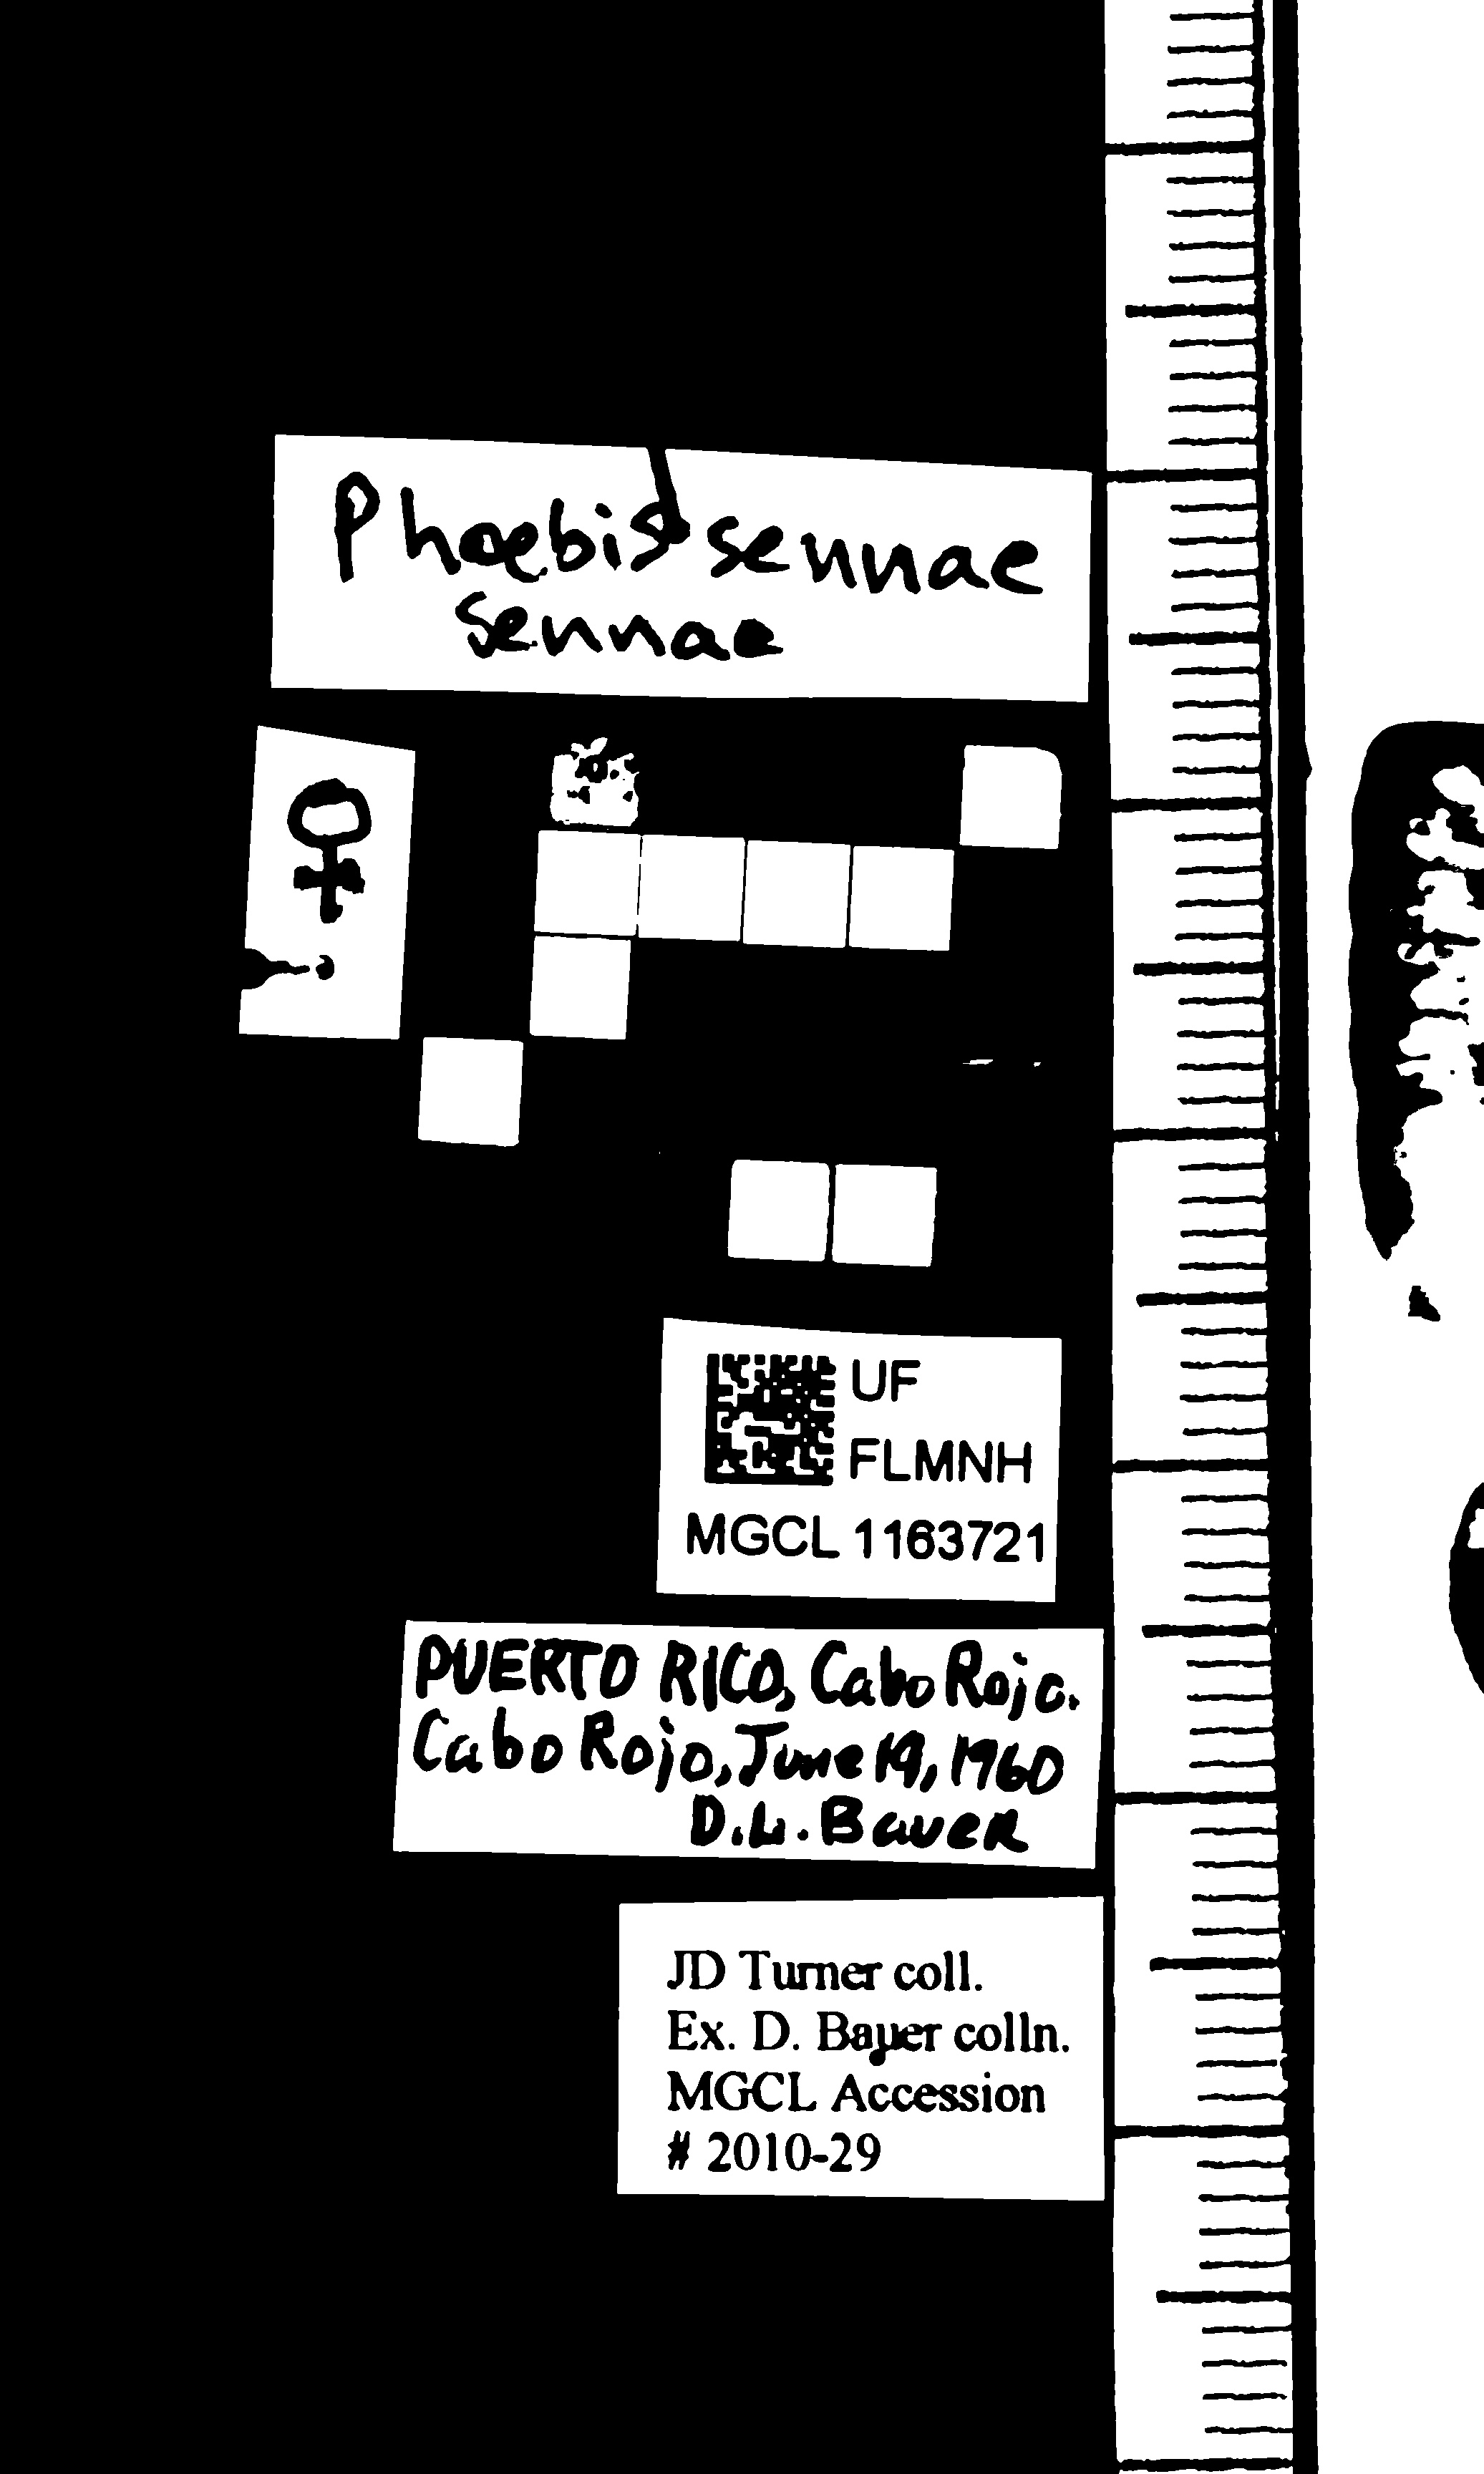 Phoebis sennae
sennae
♀
UF
FLMNH
MGCL 1163721
PUERTO RICO, Cabo Rojo.
Cabo Rojo, June 19, 1960
D.L. Bauer
JD Turner coll.
Ex. D. Bauer colln.
MGCL Accession
# 2010-29